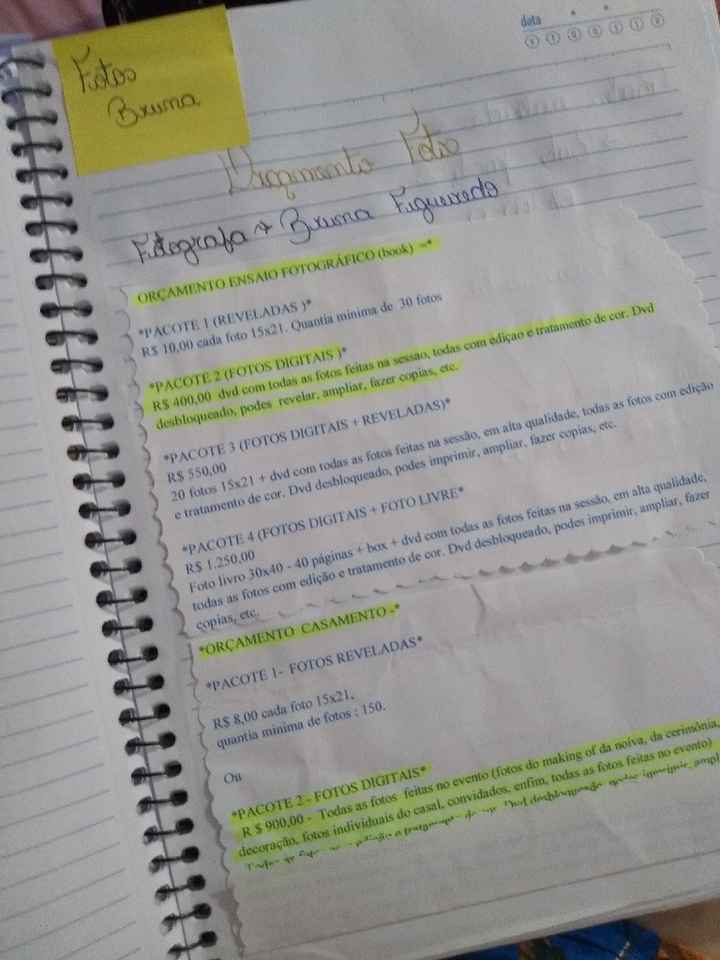 Fotos
Bruna
data
Orçamento Foto
Fotografa → Bruna Figueiredo
ORÇAMENTO ENSAIO FOTOGRÁFICO (book) –*
*PACOTE 1 (REVELADAS )*
R$ 10,00 cada foto 15x21. Quantia minima de 30 fotos
*PACOTE 2 (FOTOS DIGITAIS )*
R$ 400,00 dvd com todas as fotos feitas na sessao, todas com ediçao e tratamento de cor. Dvd
desbloqueado, podes revelar, ampliar, fazer copias, etc.
*PACOTE 3 (FOTOS DIGITAIS + REVELADAS)*
R$ 550,00
20 fotos 15x21 + dvd com todas as fotos feitas na sessão, em alta qualidade, todas as fotos com edição
e tratamento de cor. Dvd desbloqueado, podes imprimir, ampliar, fazer copias, etc.
*PACOTE 4 (FOTOS DIGITAIS + FOTO LIVRE*
R$ 1.250,00
Foto livro 30x40 - 40 páginas + box + dvd com todas as fotos feitas na sessão, em alta qualidade,
todas as fotos com edição e tratamento de cor. Dvd desbloqueado, podes imprimir, ampliar, fazer
copias, etc.
*ORÇAMENTO CASAMENTO -*
*PACOTE 1- FOTOS REVELADAS*
R$ 8,00 cada foto 15x21.
quantia minima de fotos : 150.
Ou
*PACOTE 2 - FOTOS DIGITAIS*
R $ 900,00 - Todas as fotos feitas no evento (fotos do making of da noiva, da cerimônia,
decoração, fotos individuais do casal, convidados, enfim, todas as fotos feitas no evento)